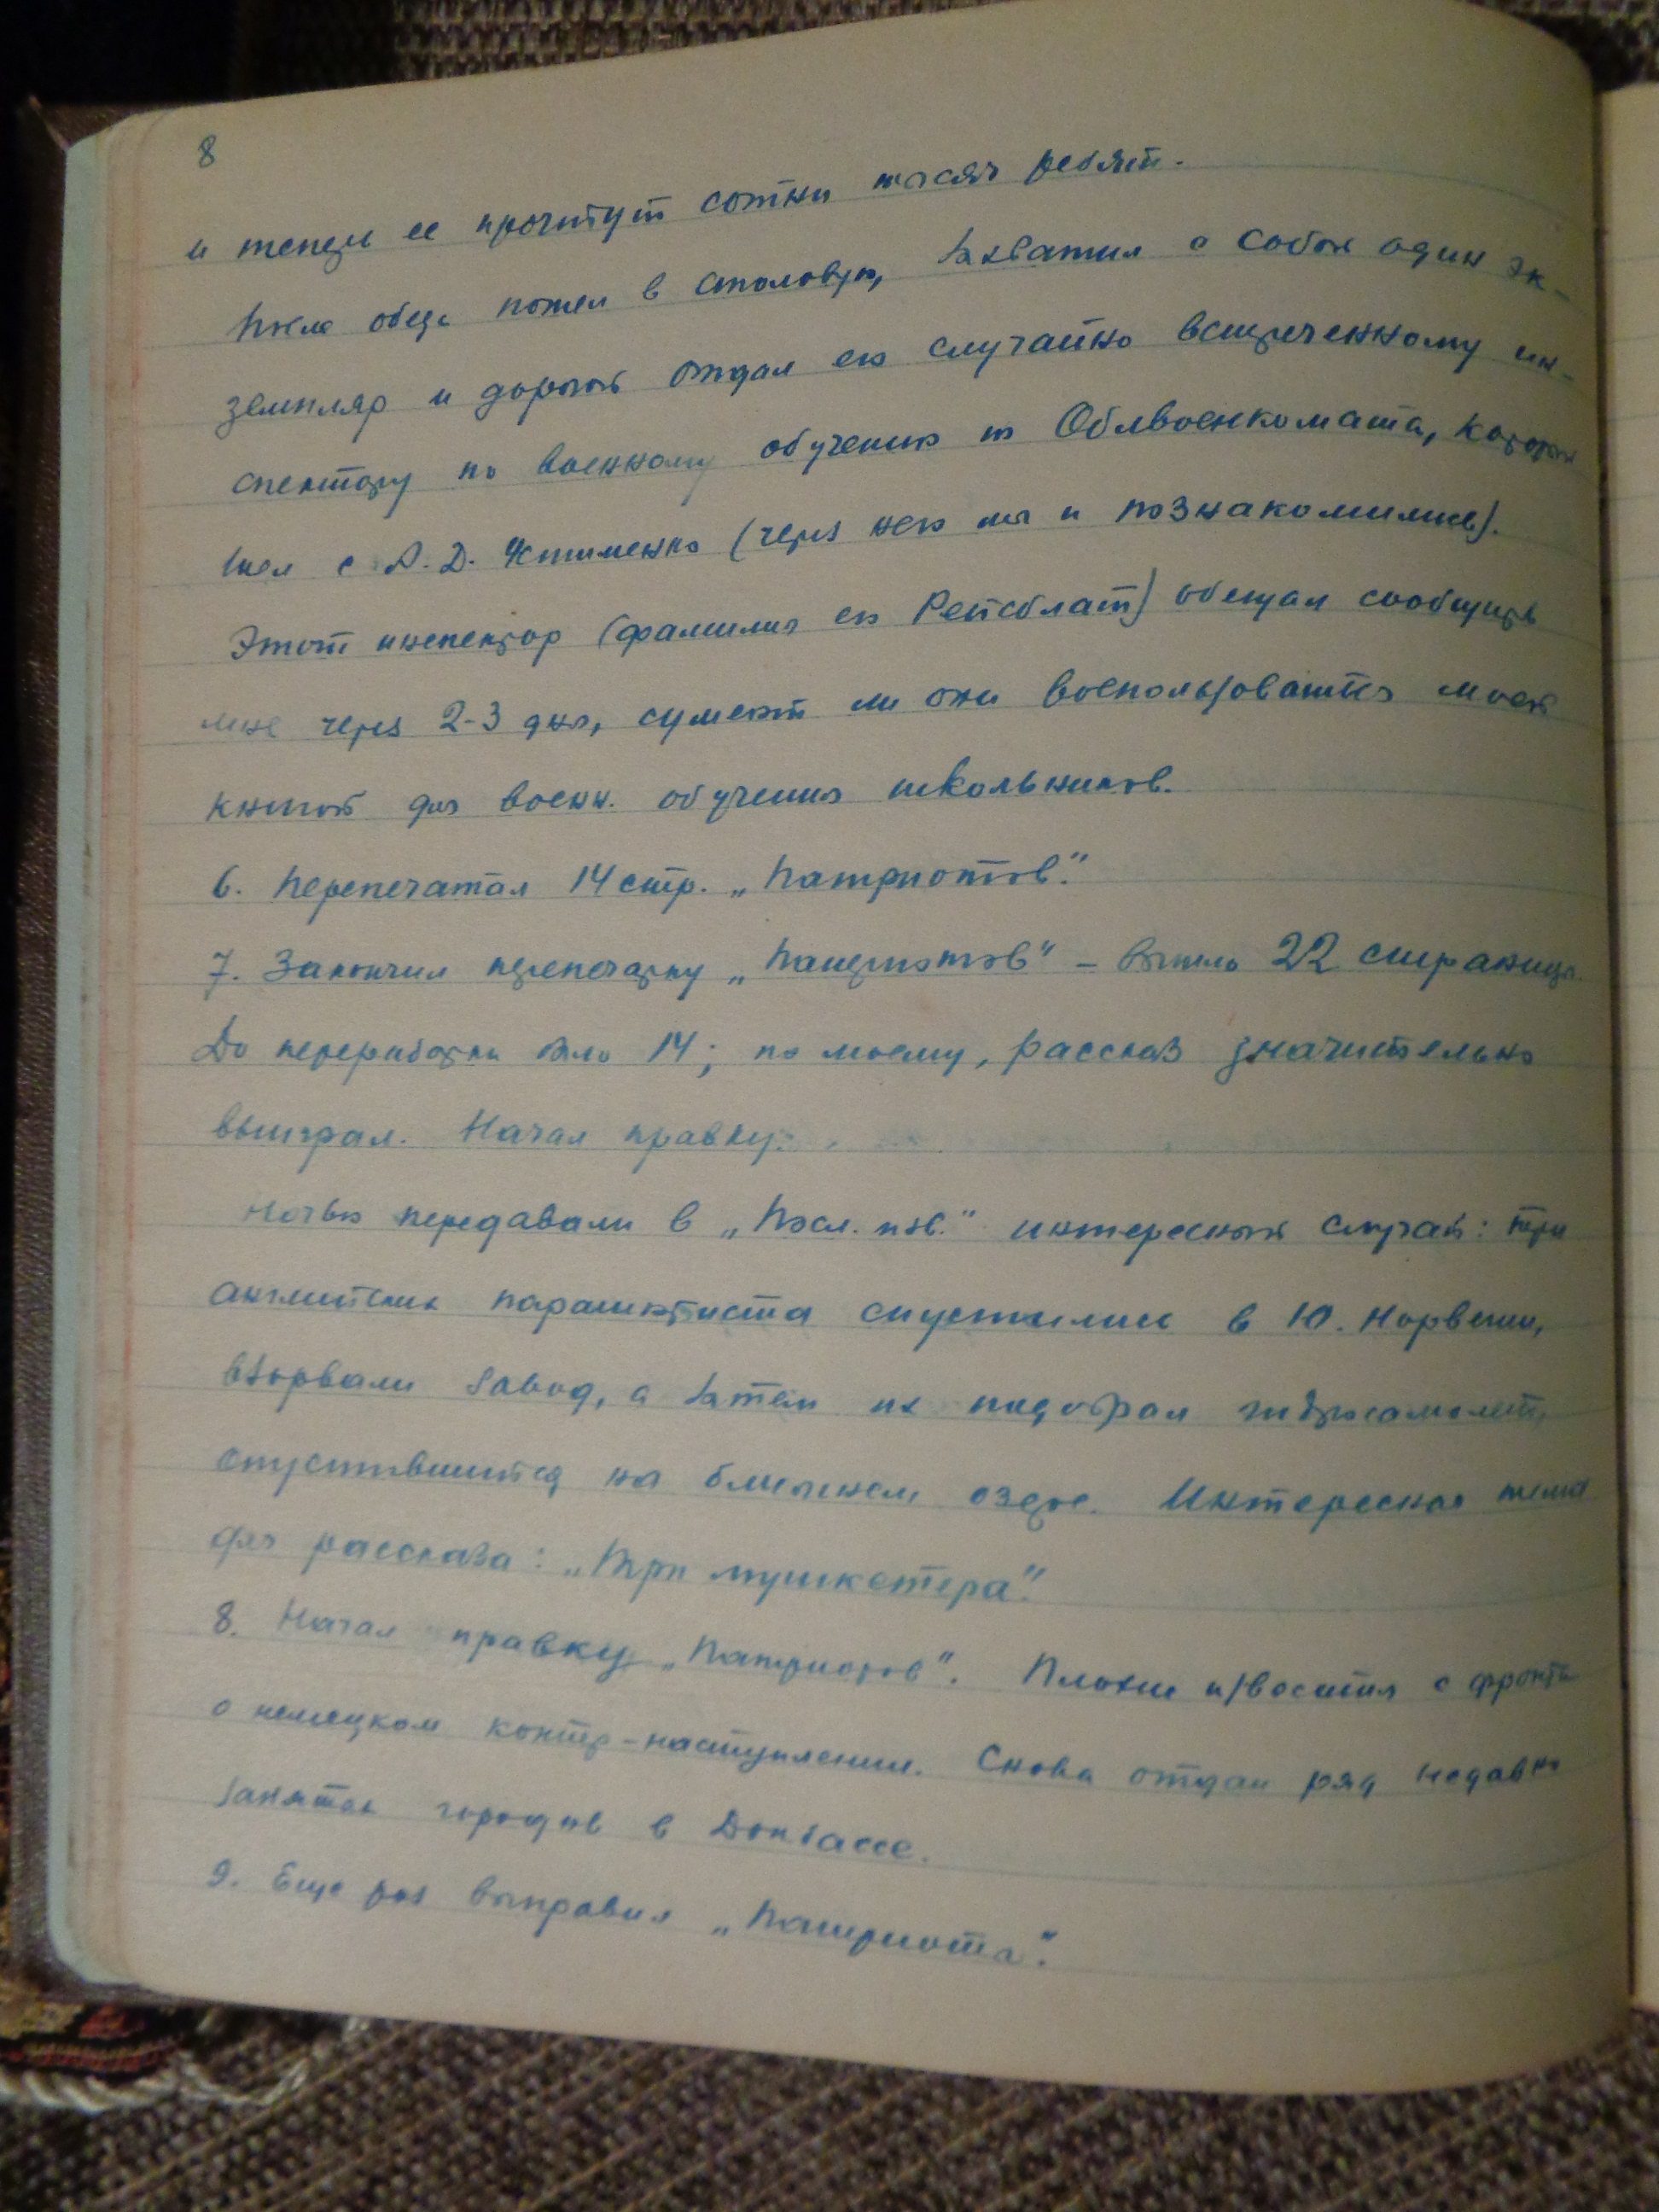 8
и теперь ее прочтут сотни тысяч ребят.
После обеда пошел в столовую, захватил с собой один эк-
земпляр и дорогой отдал его случайно встреченному ин-
спектору по военному обучению из Облвоенкомата, который
шел с А. Д. Устименко (через него мы и познакомились).
Этот инспектор (фамилия его Рейсблат) обещал сообщить
мне через 2-3 дня, сумеют ли они воспользоваться моей
книгой для военн. обучения школьников.
6. Перепечатал 14 стр. „Патриотов".
7. Закончил перепечатку „Патриотов" – вышло 22 страницы.
До переработки было 14; по моему, рассказ значительно
выиграл. Начал правку.
Ночью передавали в „Посл. изв." интересный случай: три
английских парашютиста спустились в Ю. Норвегии,
взорвали завод, а затем их подобрал гидросамолет,
спустившийся на ближнем озере. Интересная тема
для рассказа: „Три мушкетера".
8. Начал правку „Патриотов". Плохие известия с фронта
о немецком контр-наступлении. Снова отдан ряд недавно
занятых городов в Донбассе.
9. Еще раз выправил „Патриота".